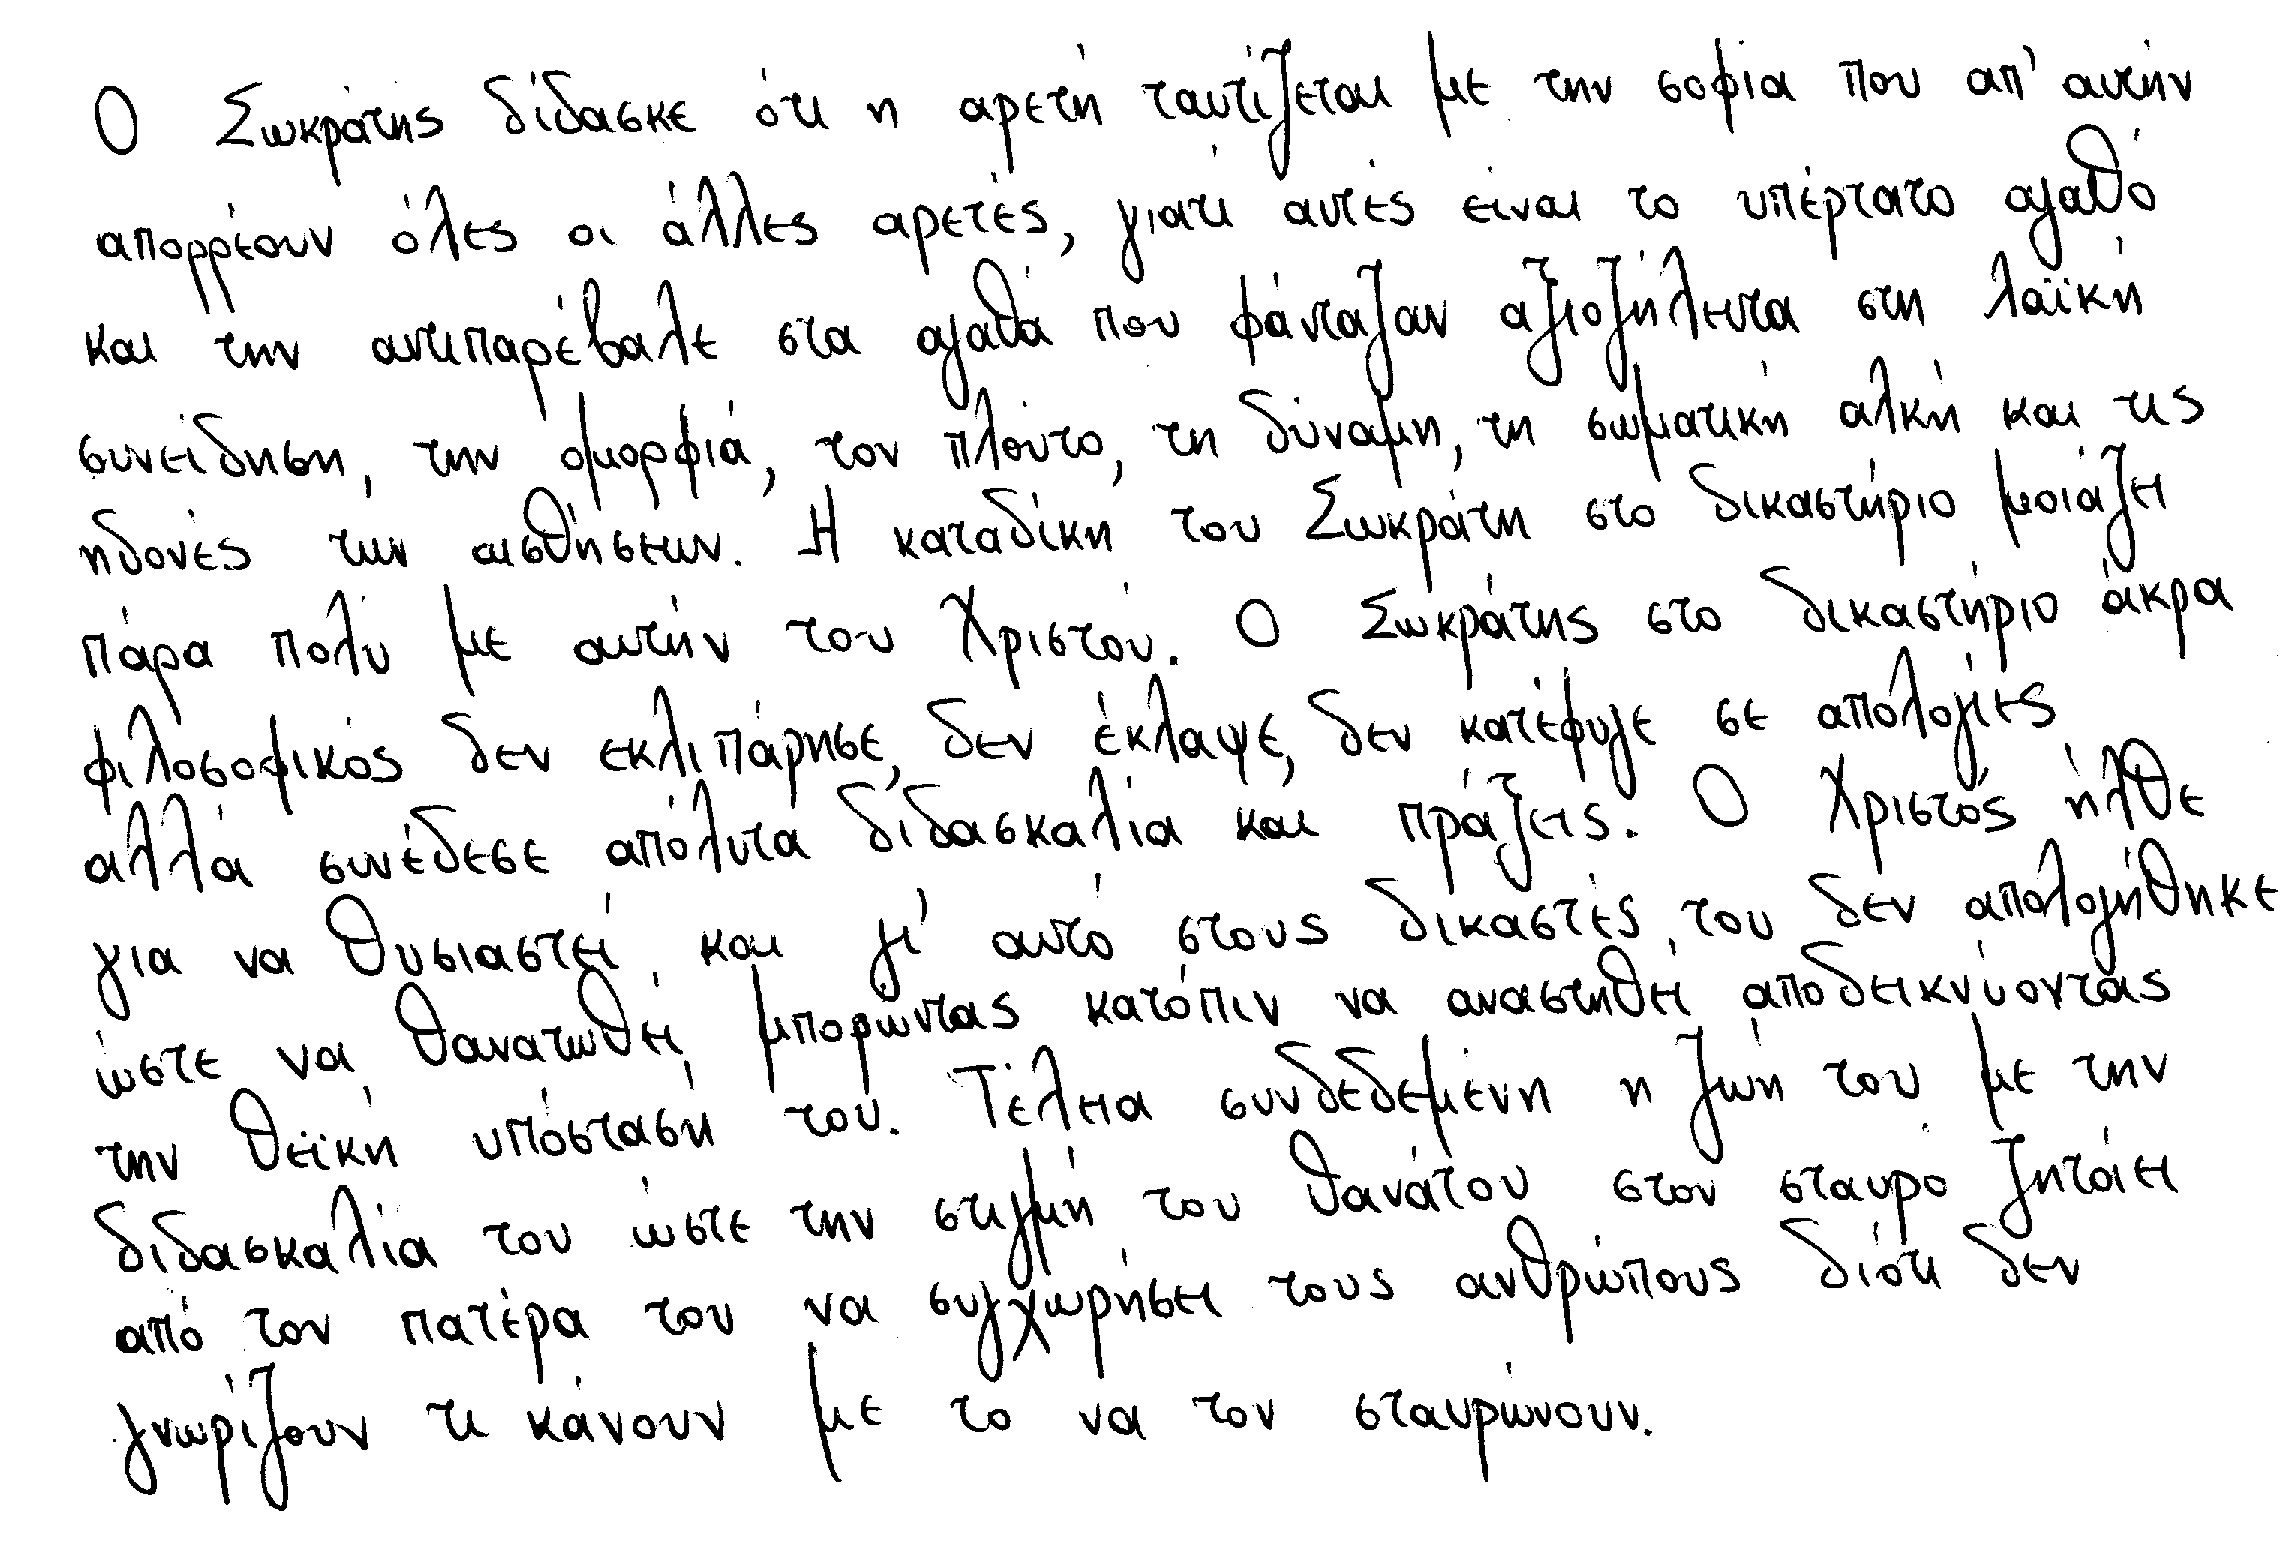 Ο Σωκράτης δίδασκε ότι η αρετή ταυτίζεται με την σοφία που απ' αυτήν
απορρέουν όλες οι άλλες αρετές, γιατί αυτές είναι το υπέρτατο αγαθό
και την αντιπαρέβαλε στα αγαθά που φάνταζαν αξιοζήλευτα στη λαϊκή
συνείδηση, την ομορφιά, τον πλούτο, τη δύναμη, τη σωματική αλκή και τις
ηδονές των αισθήσεων. Η καταδίκη του Σωκράτη στο δικαστήριο μοιάζει
πάρα πολύ με αυτήν του Χριστού. Ο Σωκράτης στο δικαστήριο άκρα
φιλοσοφικός δεν εκλιπάρησε, δεν έκλαψε, δεν κατέφυγε σε απολογίες
αλλά συνέδεσε απόλυτα διδασκαλία και πράξεις. Ο Χριστός ήλθε
για να θυσιαστεί και γι' αυτό στους δικαστές του δεν απολογήθηκε
ώστε να θανατωθεί μπορώντας κατόπιν να αναστηθεί αποδεικνύοντας
την θεϊκή υπόστασή του. Τέλεια συνδεδεμένη η ζωή του με την
διδασκαλία του ώστε την στιγμή του θανάτου στον σταυρό ζητάει
από τον πατέρα του να συγχωρήσει τους ανθρώπους διότι δεν
γνωρίζουν τι κάνουν με το να τον σταυρώνουν.